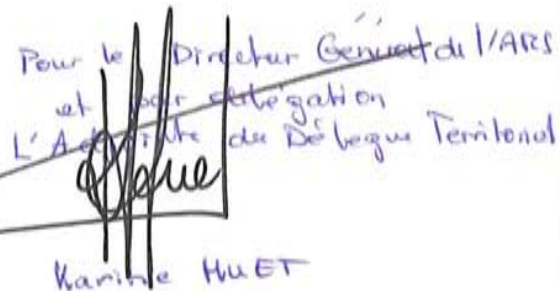 Pour le Directeur Général de l'ARS
et par délégation
L'Adjointe du Délégué Territorial
Karine HUET